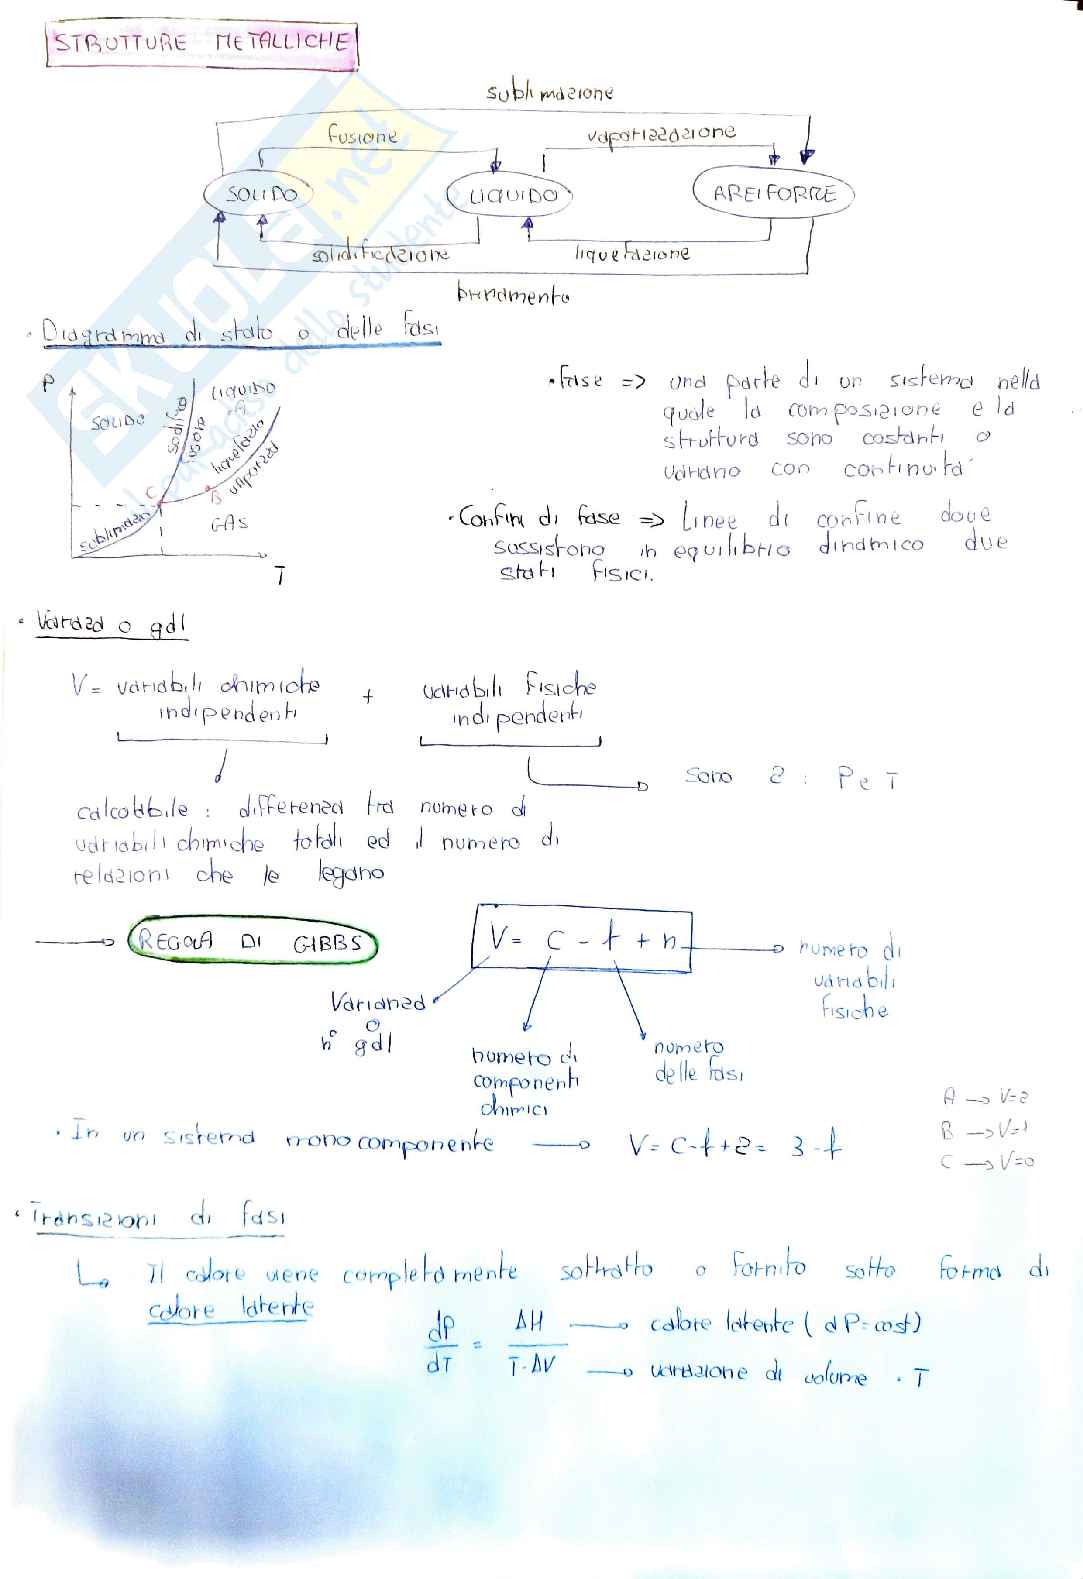 STRUTTURE METALLICHE
sublimazione
fusione
vaporizzazione
SOLIDO
LIQUIDO
AREIFORME
solidificazione
liquefazione
brinamento
• Diagramma di stato o delle fasi
P
SOLIDO
LIQUIDO
A
C
B
GAS
T
• Fase => una parte di un sistema nella
quale la composizione e la
struttura sono costanti o
variano con continuità
• Confini di fase => Linee di confine dove
sussistono in equilibrio dinamico due
stati fisici.
• Varianza o gdl
V = variabili chimiche
indipendenti
+
variabili fisiche
indipendenti
sono 2 : P e T
calcolabile : differenza tra numero di
variabili chimiche totali ed il numero di
relazioni che le legano
REGOLA DI GIBBS
V = C - f + n
numero di
variabili
fisiche
Varianza
o
n° gdl
numero di
componenti
chimici
numero
delle fasi
A → V=2
B → V=1
C → V=0
• In un sistema monocomponente → V = C - f + 2 = 3 - f
• Transizioni di fasi
↳ Il calore viene completamente sottratto o fornito sotto forma di
calore latente
dP/dT = ΔH/T·ΔV
→ calore latente ( dP=cost)
→ variazione di volume · T
SKUOLA.net
il paradiso dello studente